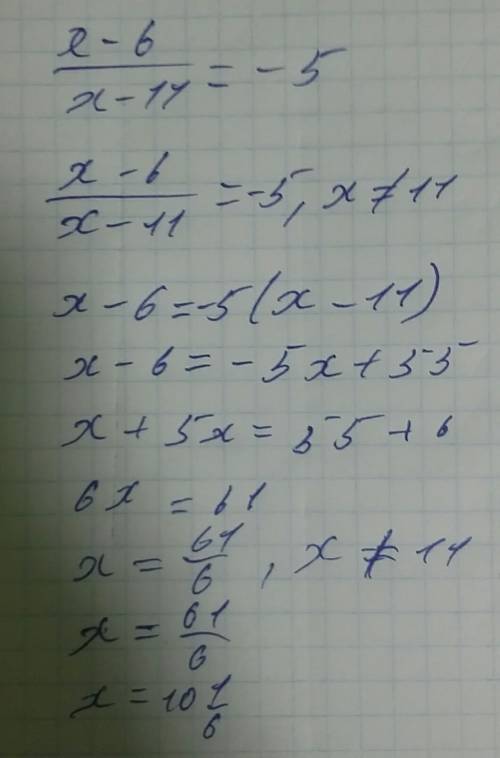 x - 6 / x - 11 = - 5
x - 6 / x - 11 = -5, x ≠ 11
x - 6 = -5 (x - 11)
x - 6 = - 5x + 55
x + 5x = 55 + 6
6x = 61
x = 61/6 , x ≠ 11
x = 61/6
x = 10 1/6